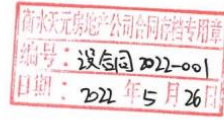 衡水天元房地产公司合同存档专用章
编号：设合同2022-001
日期：2022年5月26日